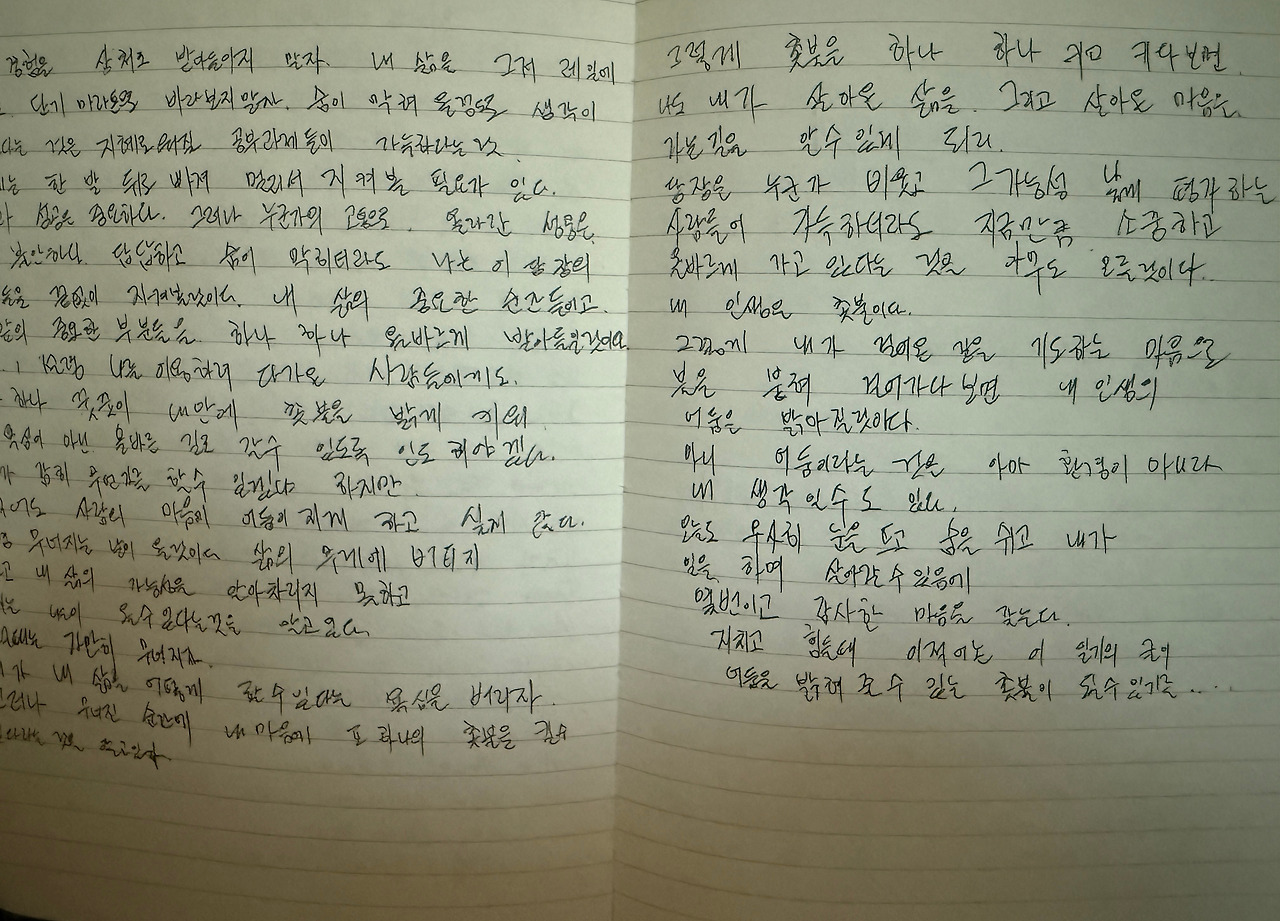 경험을 상처로 받아들이지 말자. 내 삶을 그저 레일에
단기 마라톤으로 바라보지 말자. 숨이 막혀 올정도로 생각이
것은 지혜로워져 공부라게 들이 가득하다는 것.
는 한 발 뒤로 빠져 멀리서 지켜볼 필요가 있다.
성공은 중요하다. 그러나 누군가의 고통으로 올라간 성공은
불안하다. 답답하고 숨이 막히더라도 나는 이 삶
들을 끝없이 지켜볼것이다. 내 삶의 중요한 순간들이고.
삶의 중요한 부분들을 하나 하나 올바르게 받아들일것이다.
나를 이용하려 다가온 사람들에게도.
하나 꿋꿋이 내안에 촛불을 밝게 키워
욕심이 아닌 올바른 길로 갈수 있도록 인도 해야 겠다.
가 감히 할수 있겠냐 하지만.
사람의 마음에 어둠이 지게 하고 싶지 않다.
무너지는 날이 올것이다. 삶의 무게에 버티지
고 내 삶의 가능성을 알아차리지 못하고
는 날이 올수 있다는것을 알고 있다.
때는 가만히 무너지자.
가 내 삶을 어떻게 할 수 있다는 욕심을 버리자.
그러나 무너진 순간에 내 마음에 또 하나의 촛불을 킬수
있다는 것을
그렇게 촛불을 하나 하나 키고 키다보면.
나도 내가 살아온 삶을. 그리고 살아온 마음을.
가는길을 알수 있게 되리.
당장은 누군가 비웃고 그가능성 낮게 평가하는
사람들이 가득하더라도 지금만큼 소중하고
올바르게 가고 있다는 것을 아무도 모를것이다.
내 인생은 촛불이다.
그렇게 내가 걸어온 길을 기도하는 마음으로
불을 붙혀 걸어가다보면 내 인생의
어둠은 밝아질것이다.
아니 어둠이라는 것은 아마 환경이 아니라
내 생각 일수도 있다.
오늘도 무사히 눈을 뜨고 숨을 쉬고 내가
일을 하며 살아갈 수 있음에
몇번이고 감사한 마음을 갖는다.
지치고 힘들때 이적이는 이 일기의 글이
어둠을 밝혀 줄 수 있는 촛불이 될수 있기를....